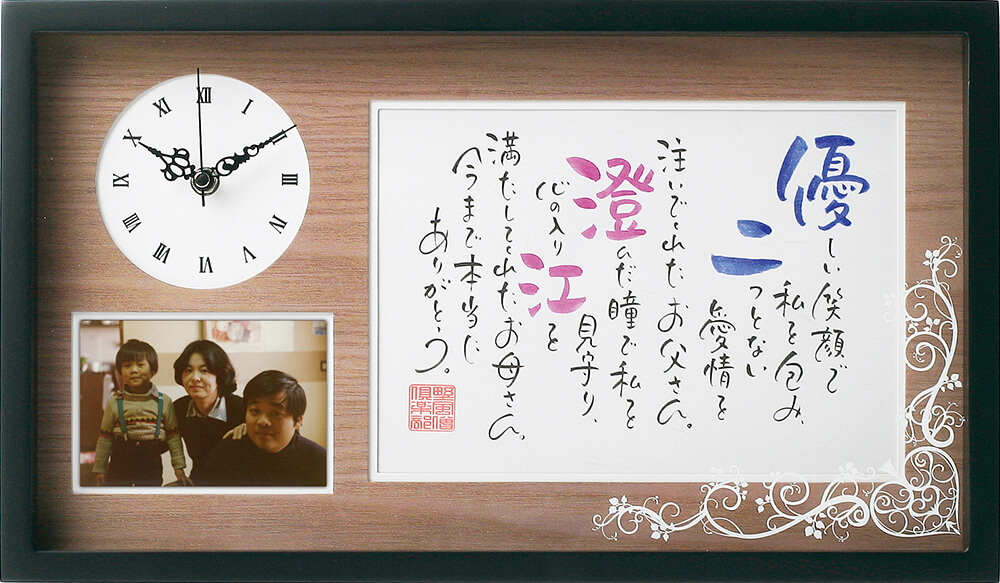 XII
I
III
IV
V
VI
VII
VIII
IX
X
XI
優しい笑顔で
私を包み、
二つとない
愛情を
注いでくれたお父さん。
澄んだ瞳で私を
見守り、
心の入り江を
満たしてくれたお母さん。
今まで本当に
ありがとう。
倶楽部